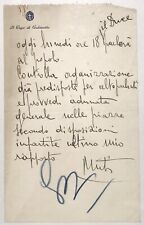 Il Capo di Gabinetto
Duce
oggi lunedì ore 18 parlerà
al popolo
Controlla organizzazione
già predisposta per altoparlanti
e provvedi adunata
generale nelle piazze
secondo disposizioni
impartite ultimo mio
rapporto